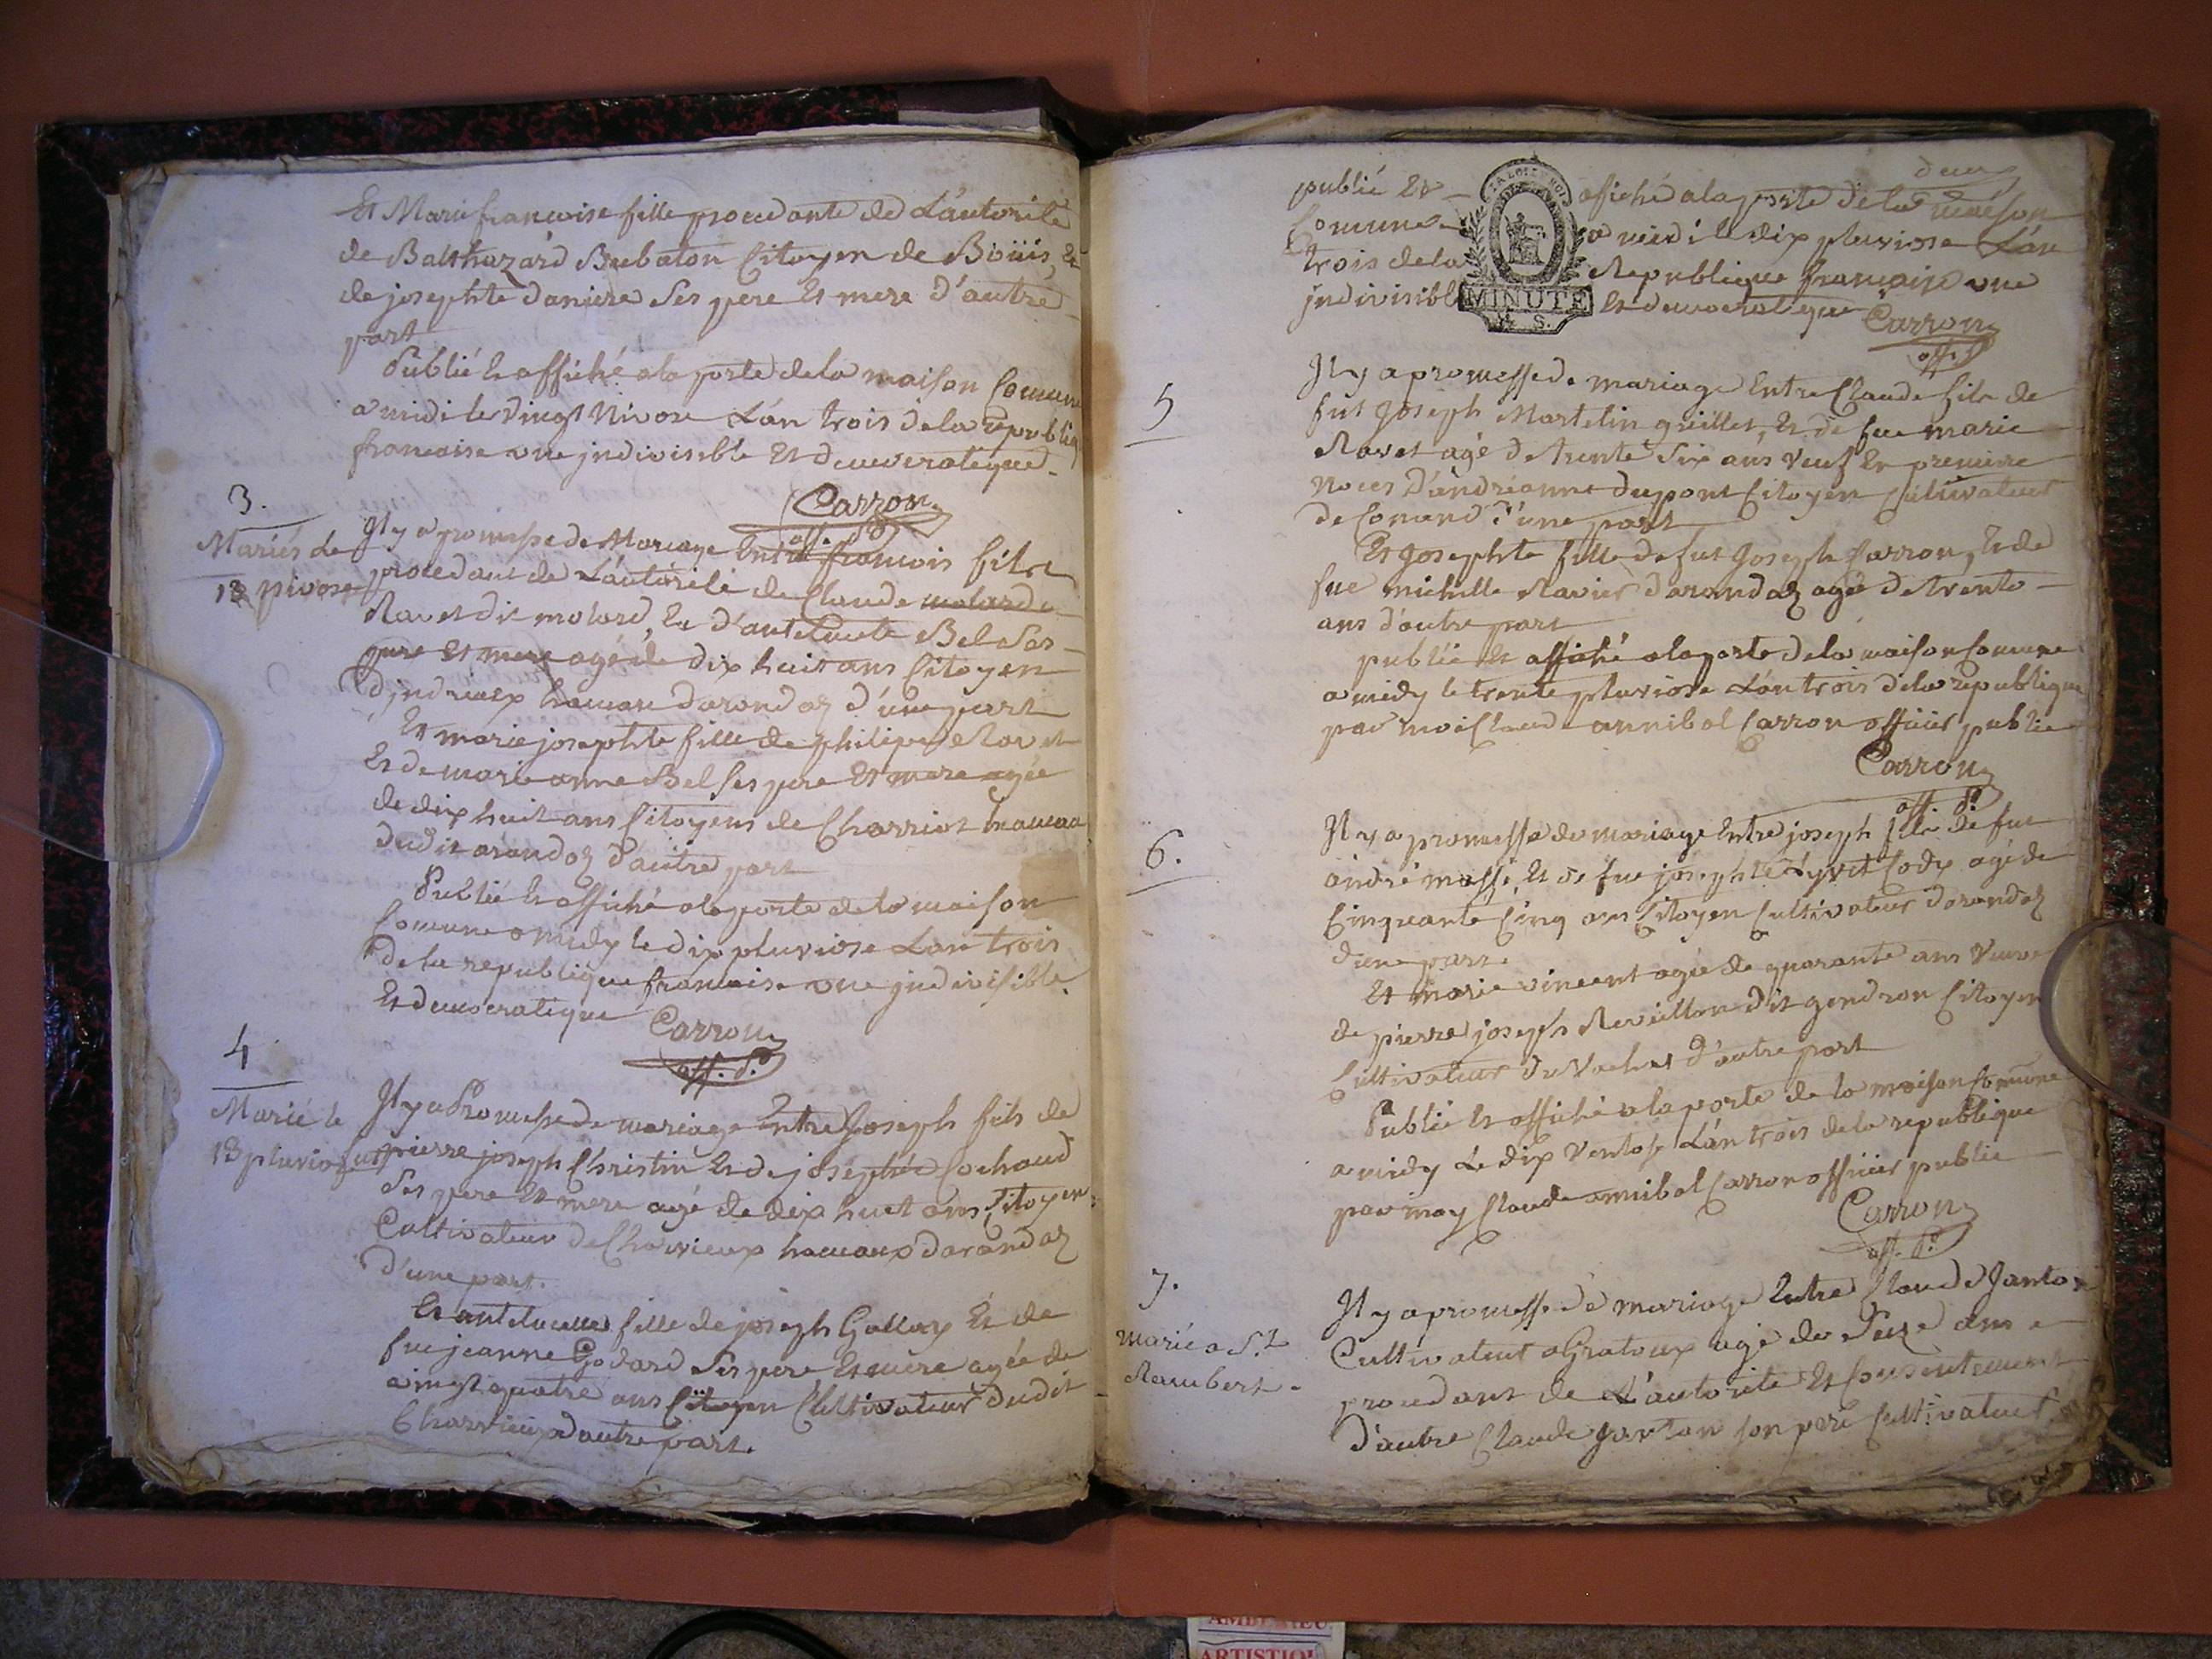 Et Marie francoise fille procedante de L'autorité
de Balthazard Bubaton Citoyen de
de josephte daniere Ses pere Et mere d'autre
part
Publié Et affiché a la porte de la maison Comune
a midi le vingt Nivose L'an trois de la republiq
francaise une jndivisible Et democratique
Carron
off. P
3.
Mariés le
13 pivose
Jl y a promesse de Mariage Entre francois fils
procedant de L'autorité de Claude
Ravet dit molard, Et d'antelmette Bel Ses
pere Et mere agé de dix huit ans Citoyen
d'jndrieux hameau darandaz d'une part
Et marie josephte fille de philipe Ravet
Et de marie anne Bel Ses pere Et mere agée
de dix huit ans Citoyens de Charriot hameau
dudit arandaz d'autre part
Publié Et affiché a la porte de la maison
Comune a midy le dix pluviose L'an trois
de la republique francaise une jndivisible
Et democratique
Carron
off. P.
4
Marié le
13 pluviose
Jl y a Promesse de mariage Entre Joseph fils de
pierre joseph Christin Et de josephte Cochaud
Ses pere Et mere agé de dix huit ans, Citoyen
Cultivateur de Charvieux hameaux darandaz
d'une part.
Et fille de joseph Gallay Et de
fue jeanne Godard Ses pere Et mere agée de
vingt quatre ans Citoyen Cultivateur dudit
Charvieux d'autre part.
deux
publié Et affiché a la porte de la maison
Comune a midi le dix pluviose L'an
trois de la Republique francaise une
jndivisible Et democratique
LA LOI ET LE ROI
MINUTE
4 S.
Carron
off. P
5
Jl y a promesse de mariage Entre Claude fils de
fut Joseph Martelin grillet, Et de fue marie
Ravet agé de trente Six ans veuf En premiere
noces d'andréanne dupont Citoyen Cultivateur
de Conand d'une part
Et Josephte fille de fut Joseph Carron, Et de
fue michelle Ravier darandaz agée de trente
ans d'autre part
publié Et affiché a la porte de la maison Comune
a midy le trente pluviose L'an trois de la republique
par moi Claude annibal Carron officier public
Carron
off. P.
6.
Jl y a promesse de mariage Entre joseph fils de fut
andré massé, Et de fue josephte agé de
Cinquante Cinq ans Citoyen Cultivateur darandaz
d'une part
Et marie vincent agée de quarante ans Veuve
de pierre joseph Revillon dit gendron Citoyen
Cultivateur du Vachat d'autre part
Publié Et affiché a la porte de la maison Comune
a midy Le dix Ventose L'an trois de la republique
par moy Claude annibal Carron officier public
Carron
off. P.
7.
Marié a St
Rambert.
Jl y a promesse de mariage Entre Claude Janton
Cultivateur a Gratoux agé de Seize ans
procedant de L'autorité Et Consentement
d'autre Claude Janton son pere Cultivateur
ARTISTIQ